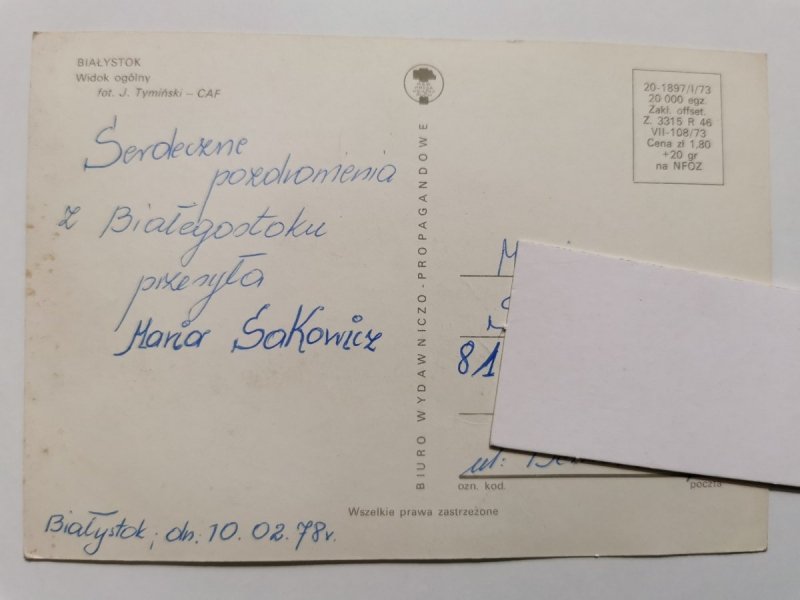 BIAŁYSTOK
Widok ogólny
fot. J. Tymiński – CAF
Serdeczne
pozdrowienia
z Białegostoku
przesyła
Maria Sakowicz
Białystok, dn. 10.02.78r.
BIURO WYDAWNICZO-PROPAGANDOWE
20-1897/I/73
20 000 egz.
Zakł. offset.
Z. 3315 R 46
VII-108/73
Cena zł 1,80
+20 gr
na NFOZ
M
81
ul.
ozn. kod.
poczta
Wszelkie prawa zastrzeżone